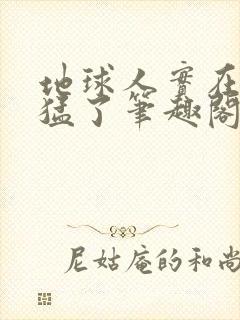 地球人實在
猛了筆趣閣
尼姑庵的和尚